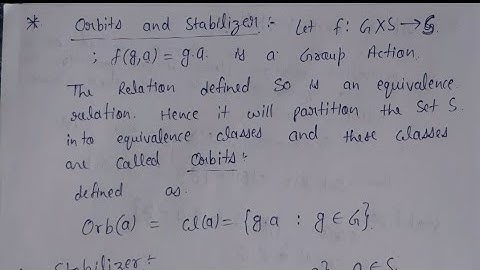 * Orbits and Stabilizer :- Let f: G×S → S
; f(g,a) = g.a. is a Group Action.
The Relation defined So is an equivalence
relation. Hence it will partition the Set S
in to equivalence classes and these classes
are called Orbits :-
defined as.
Orb(a) = cl(a) = {g.a : g ∈ G}.
Stabilizer :-